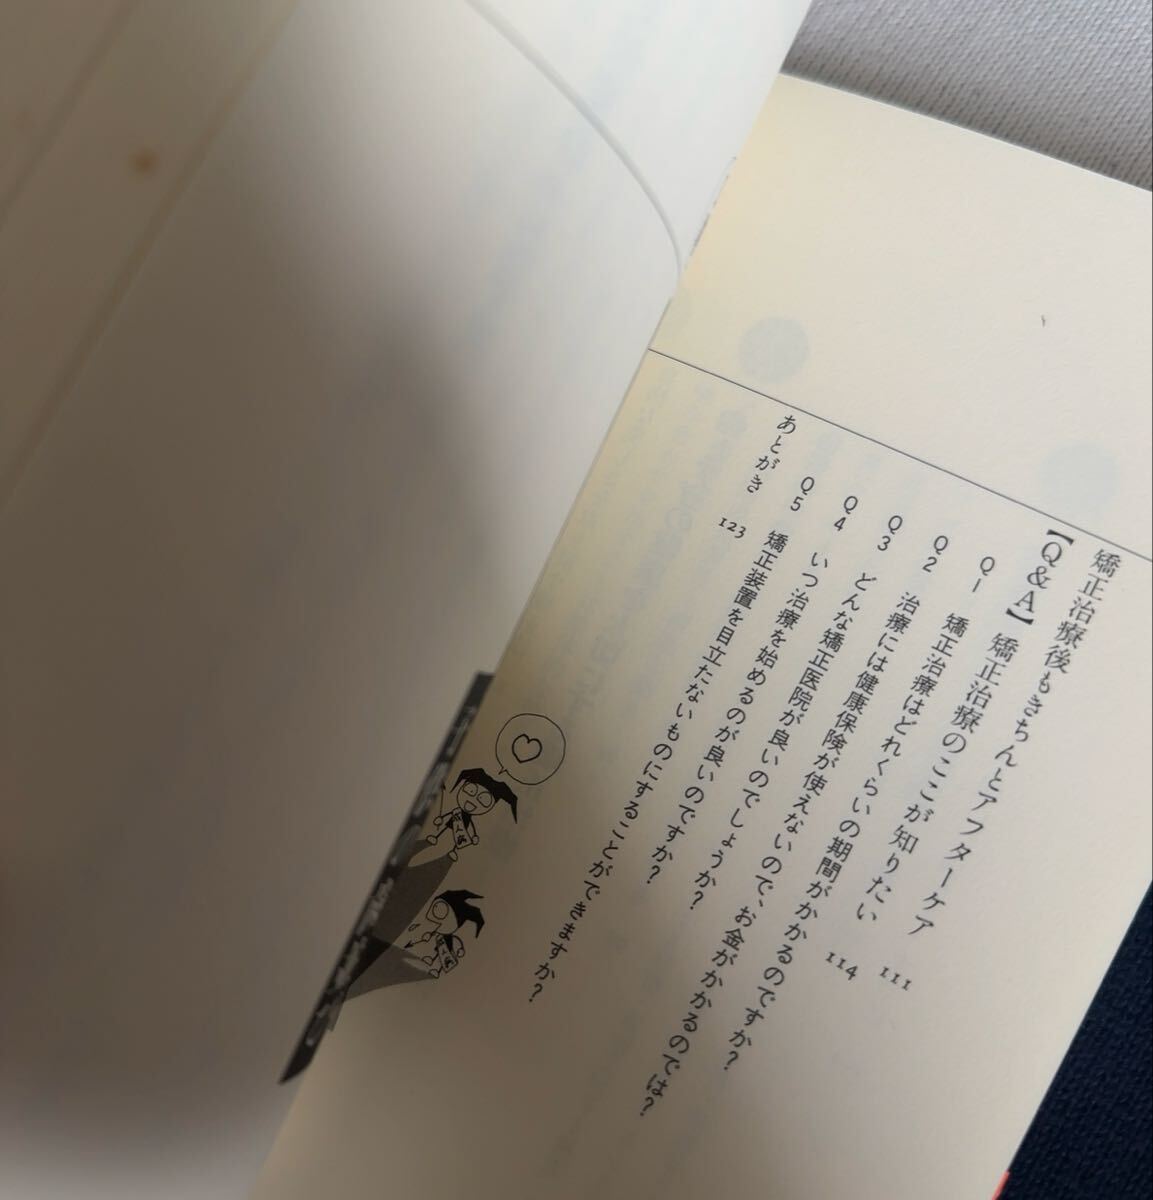 矯正治療後もきちんとアフターケア 111
【Q&A】矯正治療のここが知りたい 114
Q1 矯正治療はどれくらいの期間がかかるのですか?
Q2 治療には健康保険が使えないので、お金がかかるのでは?
Q3 どんな矯正医院が良いのでしょうか?
Q4 いつ治療を始めるのが良いのですか?
Q5 矯正装置を目立たないものにすることができますか?
あとがき 123